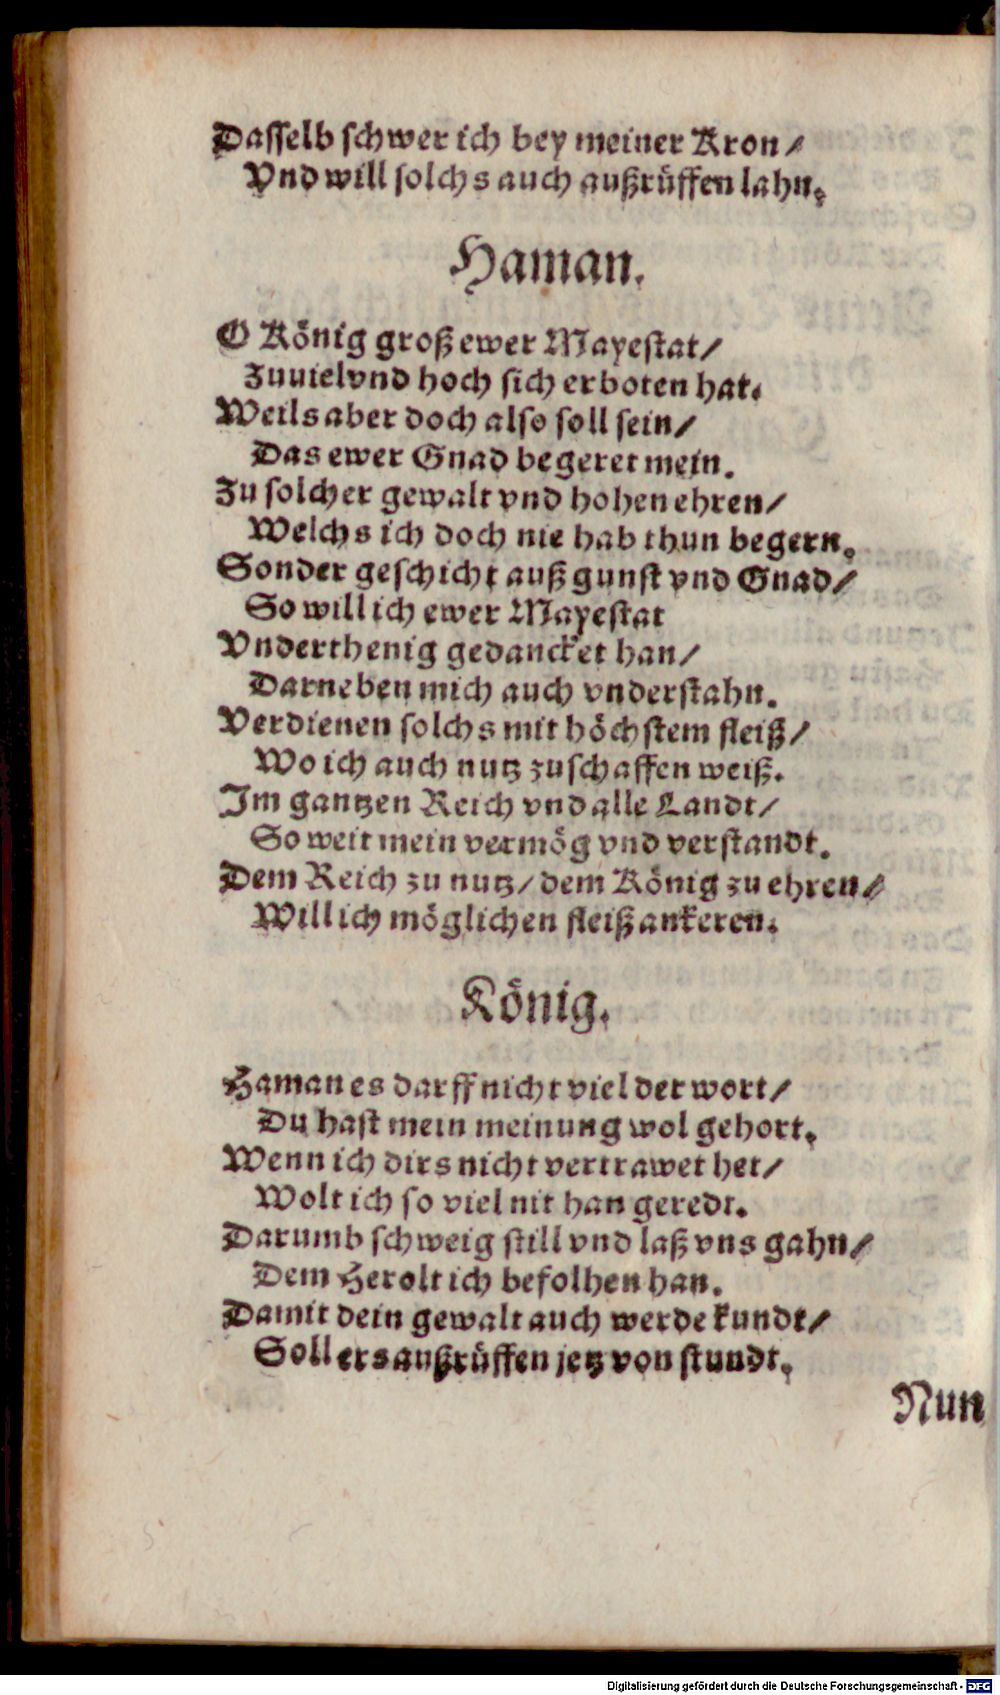 Dasselb schwer ich bey meiner Kron/
Vnd will solchs auch außrüffen lahn.
Haman.
O König groß ewer Mayestat/
Zuuiel vnd hoch sich erboten hat.
Weils aber doch also soll sein/
Das ewer Gnad begeret mein.
Zu solcher gewalt vnd hohen ehren/
Welchs ich doch nie hab thun begern.
Sonder geschicht auß gunst vnd Gnad/
So will ich ewer Mayestat
Vnderthenig gedancket han/
Darneben mich auch vnderstahn.
Verdienen solchs mit höchstem fleiß/
Wo ich auch nutz zuschaffen weiß.
Im gantzen Reich vnd alle Landt/
So weit mein vermög vnd verstandt.
Dem Reich zu nutz/ dem König zu ehren/
Will ich möglichen fleiß ankeren.
König.
Haman es darff nicht viel der wort/
Du hast mein meinung wol gehort.
Wenn ich dirs nicht vertrawet het/
Wolt ich so viel nit han geredt.
Darumb schweig still vnd laß vns gahn/
Dem Herolt ich befolhen han.
Damit dein gewalt auch werde kundt/
Soll ers außrüffen jetz von stundt.
Nun
Digitalisierung gefördert durch die Deutsche Forschungsgemeinschaft - DFG